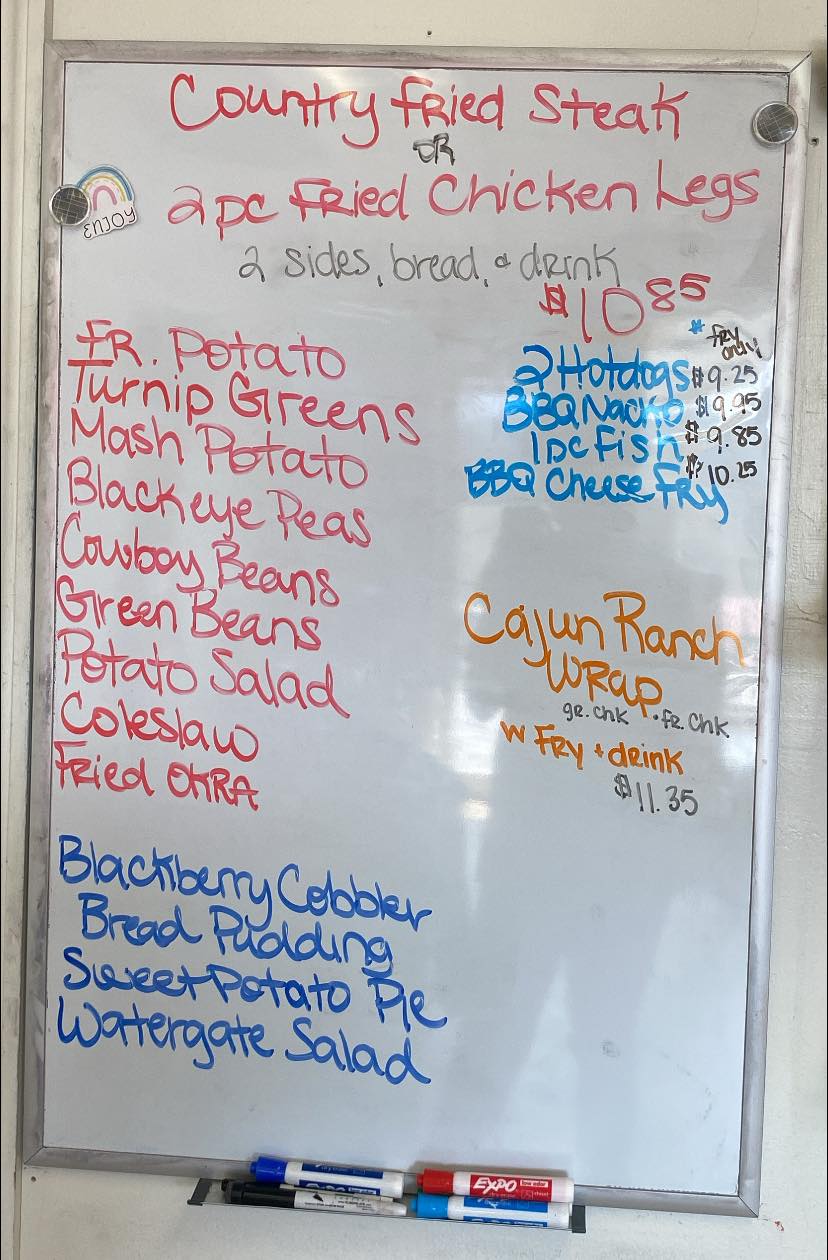 Country Fried Steak
OR
2pc Fried Chicken Legs
ENJOY
2 sides, bread, & drink
$10 85
FR. Potato
Turnip Greens
Mash Potato
Blackeye Peas
Cowboy Beans
Green Beans
Potato Salad
Coleslaw
Fried OKRA
* fry only
2 Hotdogs $9.25
BBQ Nacho $9.95
1pc Fish $9.85
BBQ Cheese Fry $10.25
Cajun Ranch
WRap
gr. chk • fr. chk
w Fry + drink
$11.35
Blackberry Cobbler
Bread Pudding
Sweet Potato Pie
Watergate Salad
EXPO